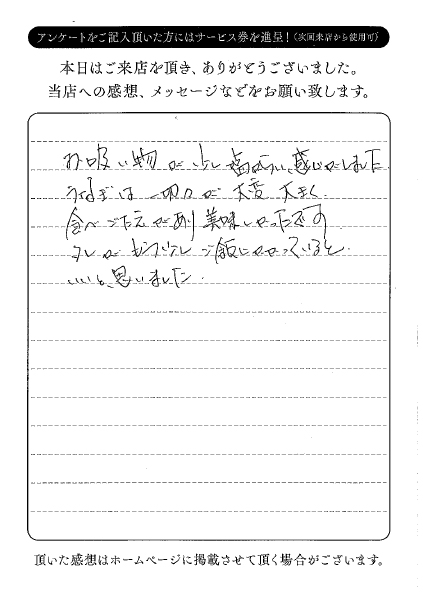 アンケートをご記入頂いた方にはサービス券を進呈！（次回来店から使用可）
本日はご来店を頂き、ありがとうございました。
当店への感想、メッセージなどをお願い致します。
お吸い物が少し塩からい感じがしました
うなぎは一切れが大変大きく
食べごたえがあり美味しかったです
タレがもう少しご飯にかかっていると
いいと思いました
頂いた感想はホームページに掲載させて頂く場合がございます。